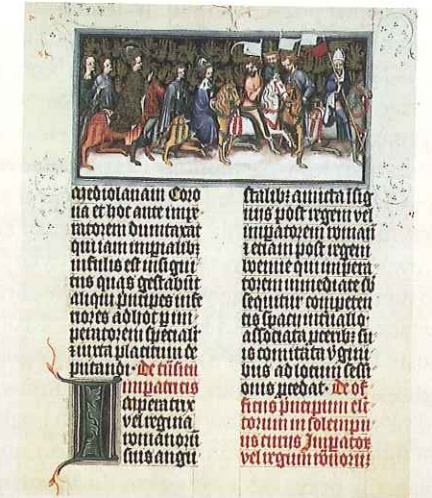 mediolanam Coro
nā et hoc ante impe
ratorem dumtaxat
qui iam imperialibꝰ
infulis est insigni
tus quas gestabūt
aliqui principes infe
riores ad hoc per im
peratorem speciali
iuxta placitum de
putandi. De
imperatricis
Imperatrix
vel regina
romanorū
suis augu
stalibꝫ amicta īsig
niis post regem vel
imperatorem roman
etiam post regem
boemie qui impera
torem immediate
sequitur competen
tis spacii
associata
is comitata virgini
bus ad locum sessi
onis procedat. De of
ficiis principum ele
ctorum in solempni
us curiis Imperator
vel regum romanorū